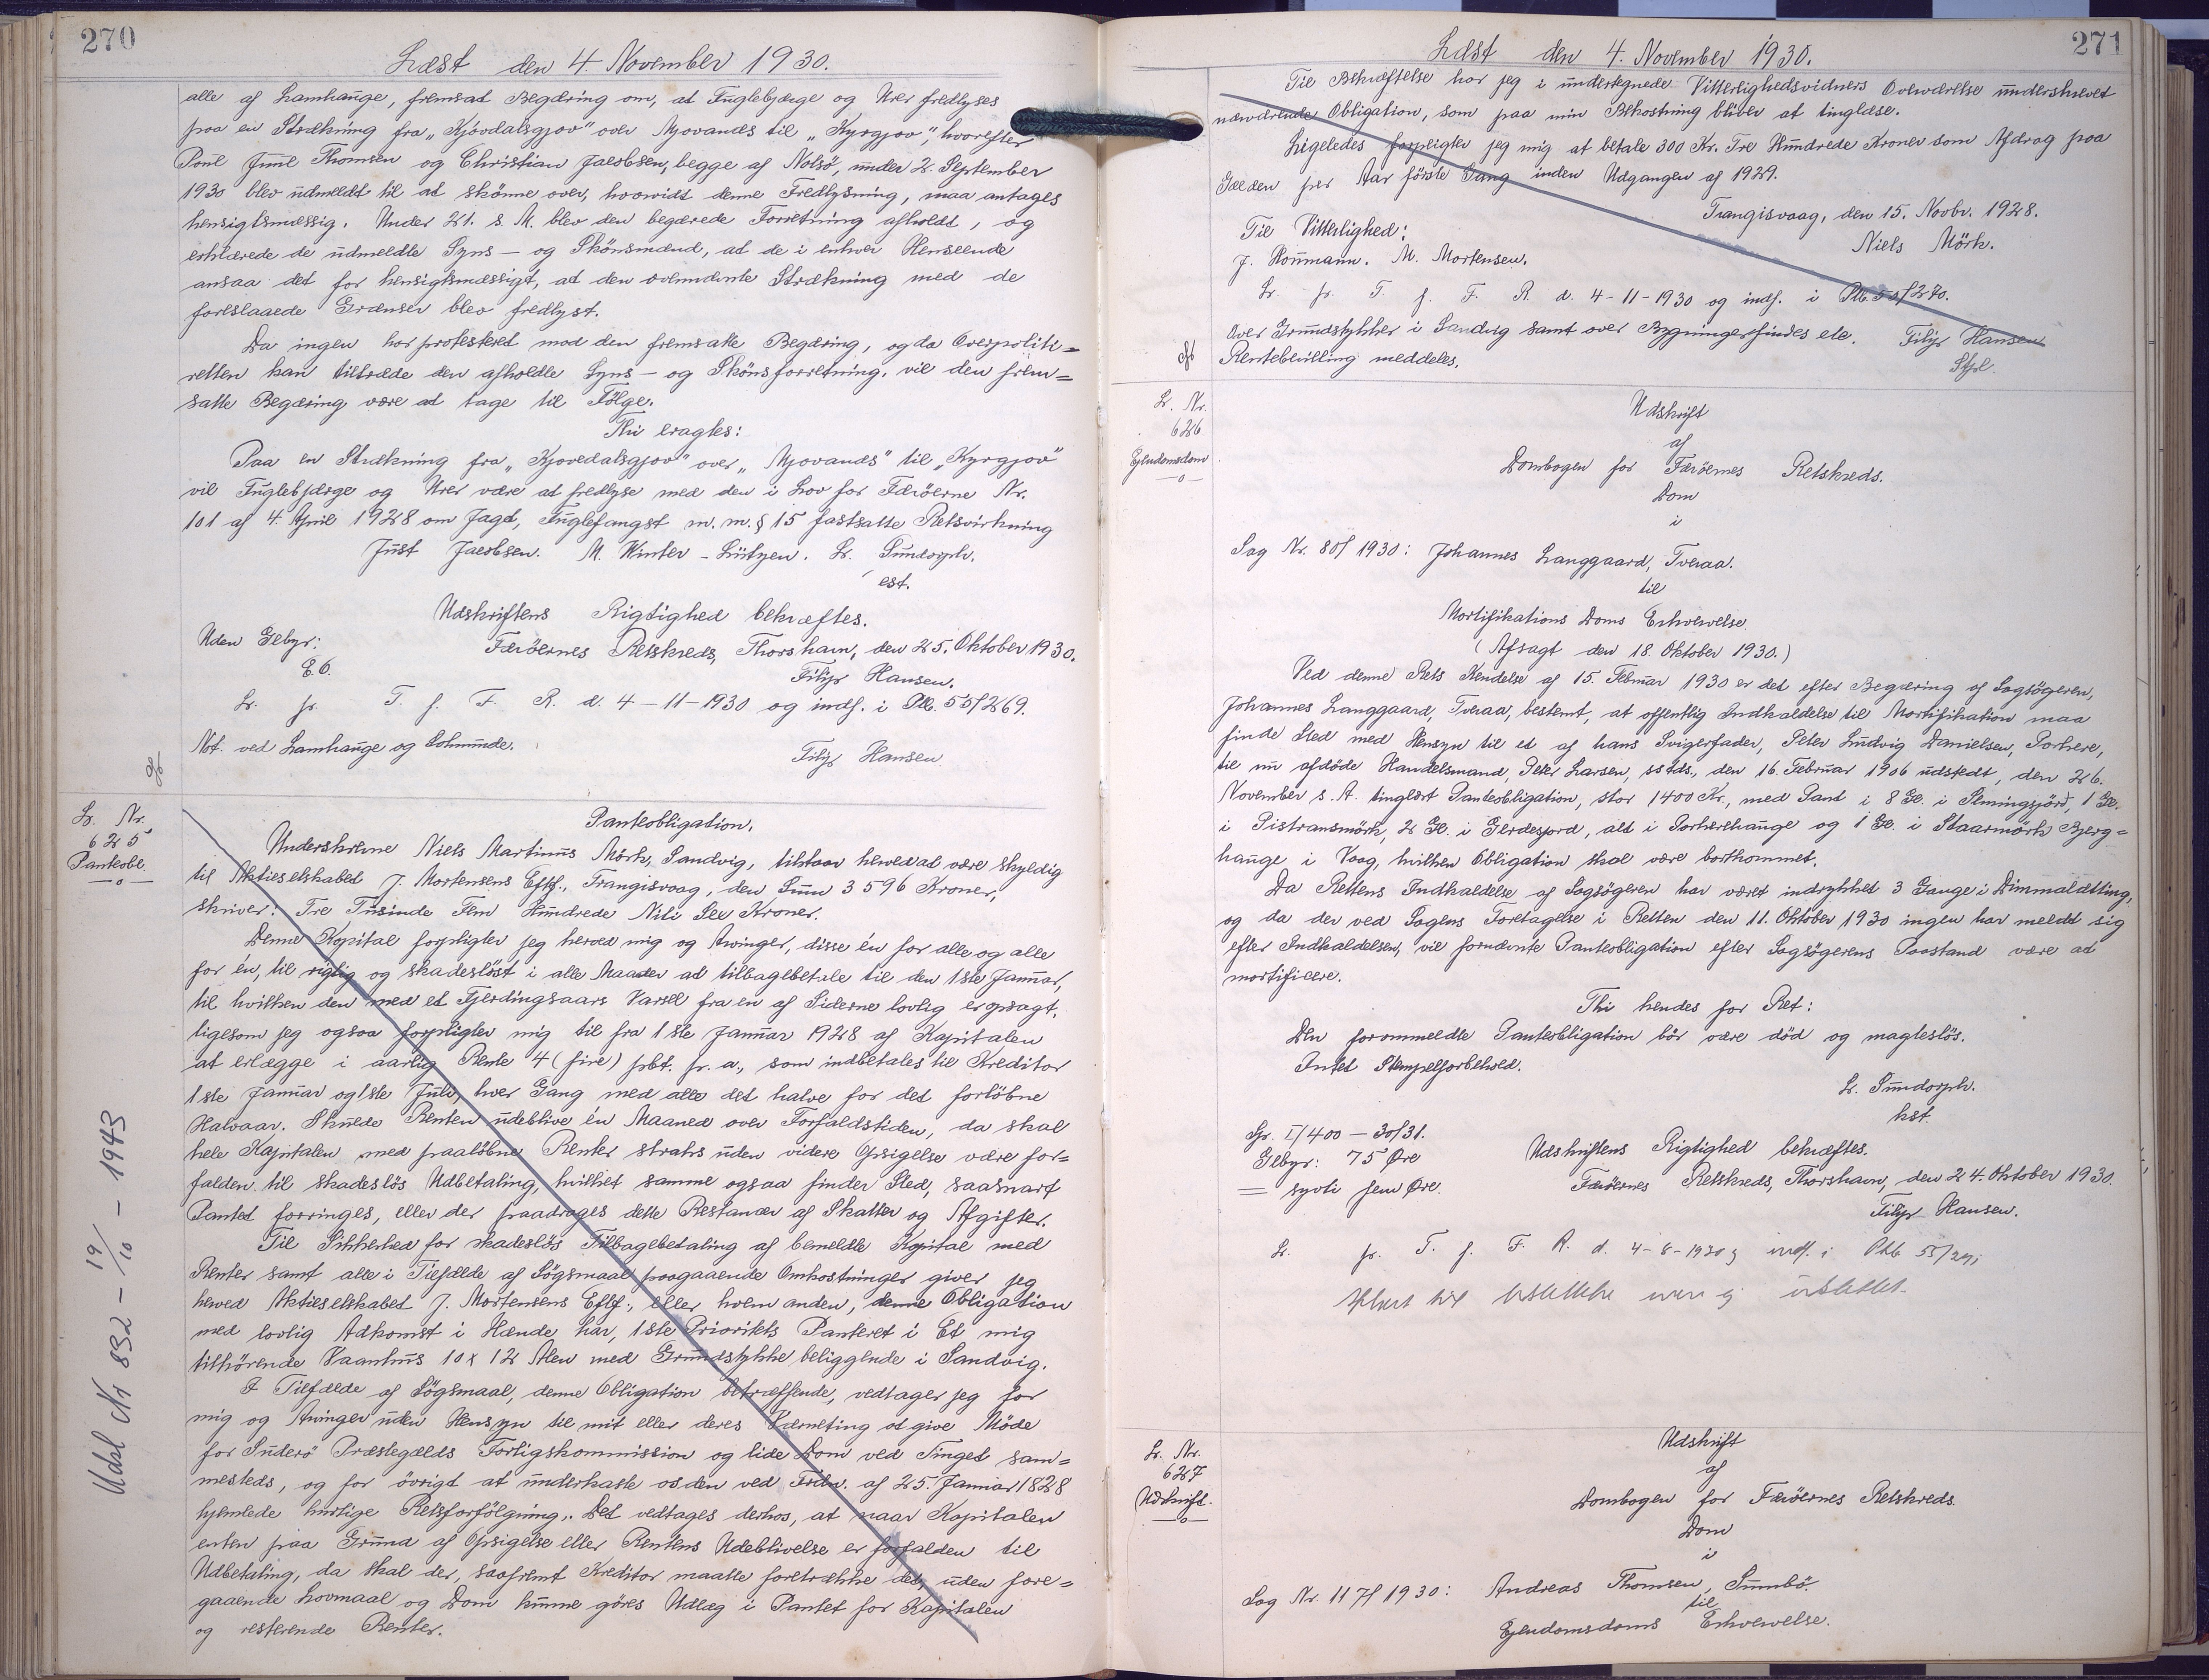 270
Læst den 4. November 1930.
alle af Lamhauge, fremsat Begæring om, at Fuglebjærge og Urer fredlyses
paa en Strækning fra „Kjovdalsgjov" over Mjovanes til „Kyrgjov", hvorefter
Poul Juul Thomsen og Christian Jacobsen, begge af Nolsö, under 2. September
1930 blev udmeldt til at skönne over, hvorvidt denne Fredlysning, maa antages
hensigtsmæssig. Under 21. s. M. blev den begærede Forretning afholdt, og
erklærede de udmeldte Syns- og Skönsmænd, at de i enhver Henseende
ansaa det for hensigtsmæssigt, at den ovennævnte Strækning med de
foreslaaede Grænser blev fredlyst.
Da ingen har protesteret mod den fremsatte Begæring, og da Overpoliti=
retten kan tiltræde den afholdte Syns- og Skönsforretning, vil den frem=
satte Begæring være at tage til Fölge.
Thi eragtes:
Paa en Strækning fra „Kjovedalsgjov" over „Mjovanes" til „Kyrgjov"
vil Fuglebjærge og Urer være at fredlyse med den i Lov for Færöerne Nr.
101 af 4. April 1928 om Jagt, Fuglefangst m.m. § 15 fastsatte Retsvirkning
Just Jacobsen. M. Winter-Lützen. Lr. Sundorph.
est.
Udskriftens Rigtighed bekræftes.
Uden Gebyr:
Færöernes Retskreds, Thorshavn, den 25. Oktober 1930.
E.6.
Filip Hansen.
Lr. pr. T. f. F. R. d. 4-11-1930 og indf. i Ptb. 55/269.
Not. ved Lamhauge og Selmunde.
Filip Hansen
Lr. Nr.
625
Panteobl.
Panteobligation.
Underskrevne Niels Martinus Mörk, Sandvig, tilstaar herved at være skyldig
til Aktieselskabet J. Mortensens Eftf., Trangisvaag, den Sum 3596 Kroner,
skriver: Tre Tusinde Fem Hundrede Niti Sex Kroner.
Denne Kapital forpligter jeg herved mig og Arvinger, disse én for alle og alle
for én, til rigtig og skadeslöst i alle Maader at tilbagebetale til den 1ste Januar,
til hvilken den med et Fjerdingsaars Varsel fra en af Siderne lovlig er opsagt,
ligesom jeg ogsaa forpligter mig til fra 1ste Januar 1928 af Kapitalen
at erlægge i aarlig Rente 4 (fire) pCt. p. a., som indbetales til Kreditor
1ste Januar og 1ste Juli, hver Gang med alle det halve for det forlöbne
Halvaar. Skulde Renten udeblive én Maaned over Forfaldstiden, da skal
hele Kapitalen med paalöbne Renter straks uden videre Opsigelse være for=
falden til skadeslös Udbetaling, hvilket samme ogsaa finder Sted, saasnart
Pantet forringes, eller der paadrages dette Restancer af Skatter og Afgifter.
Til Sikkerhed for skadeslös Tilbagebetaling af bemeldte Kapital med
Renter samt alle i Tilfælde af Sögsmaal paagaaende Omkostninger giver jeg
herved Aktieselskabet J. Mortensens Eftf., eller hvem anden, denne Obligation
med lovlig Adkomst i Hænde har, 1ste Prioritets Panteret i Et mig
tilhörende Vaanhus 10 x 12 Alen med Grundstykke beliggende i Sandvig.
I Tilfælde af Sögsmaal, denne Obligation betræffende, vedtager jeg for
mig og Arvinger uden Hensyn til mit eller deres Værneting at give Möde
for Suderö Præstegælds Forligskommission og lide Dom ved Tinget sam=
mesteds, og for övrigt at underkaste os den ved Frdn. af 25. Januar 1828
hjemlede hurtige Retsforfölgning. Det vedtages derhos, at naar Kapitalen
enten paa Grund af Opsigelse eller Rentens Udeblivelse er forfalden til
Udbetaling, da skal der, saafremt Kreditor maatte foretrække det, uden fore=
gaaende Lovmaal og Dom kunne göres Udlæg i Pantet for Kapitalen
og resterende Renter.
Udsl Nr 832 - 19/10 - 1943
271
Læst den 4. November 1930.
Til Bekræftelse har jeg i undertegnede Vitterlighedsvidners Overværelse underskrevet
nærværende Obligation, som paa min Bekostning bliver at tinglæse.
Ligeledes forpligter jeg mig at betale 300 Kr. Tre Hundrede Kroner som Afdrag paa
Gælden per Aar förste Gang inden Udgangen af 1929.
Trangisvaag, den 15. Novbr. 1928.
Til Vitterlighed:
Niels Mörk.
J. Hommann. M. Mortensen.
Lr. pr. T. f. F. R. d. 4-11-1930 og indf. i Ptb. 55/270.
Over Grundstykker i Sandvig samt over Bygninger findes ele.
Filip Hansen
Rentebevilling meddeles.
Stfl.
Lr. Nr.
626
Ejendomsdom
Udskrift
af
Dombogen for Færöernes Retskreds.
Dom
i
Sag Nr. 80/1930: Johannes Langgaard, Tveraa.
til
Mortifikations Doms Erhvervelse.
(Afsagt den 18. Oktober 1930.)
Ved denne Rets Kendelse af 15. Februar 1930 er det efter Begæring af Sagsögeren,
Johannes Langgaard, Tveraa, bestemt, at offentlig Indkaldelse til Mortifikation maa
finde Sted med Hensyn til et af hans Svigerfader, Peter Ludvig Danielsen, Porkere,
til nu afdöde Handelsmand, Peter Larsen, sstds., den 16. Februar 1906 udstedt, den 26.
November s. A. tinglæst Panteobligation, stor 1400 Kr., med Pant i 8 Gl. i Nemingsfjord, 1 Gl.
i Pistransmörk, 2 Gl. i Gerdesjord, alt i Porkerehauge og 1 Gl. i Staarmörk Bjerg=
hauge i Vaag, hvilken Obligation skal være bortkommet.
Da Rettens Indkaldelse af Sagsögeren har været indrykket 3 Gange i Dimmalætting,
og da der ved Sagens Foretagelse i Retten den 11. Oktober 1930 ingen har meldt sig
efter Indkaldelsen, vil fornævnte Panteobligation efter Sagsögerens Paastand være at
mortificere.
Thi kendes for Ret:
Den forommeldte Panteobligation bör være död og magteslös.
Intet Stempelforbehold.
Lr. Sundorph.
kst.
Gr. I/400 - 30/31.
Gebyr: 75 Øre
Udskriftens Rigtighed bekræftes.
= syvti fem Øre.
Færöernes Retskreds, Thorshavn, den 24. Oktober 1930.
Filip Hansen.
Lr. pr. T. f. F. R. d. 4-8-1930 og indf. i Ptb 55/271
Lr. Nr.
627
Udskrift.
Udskrift
af
Dombogen for Færöernes Retskreds.
Dom
i
Sag Nr. 117/1930: Andreas Thomsen, Sumbö.
til
Ejendomsdoms Erhvervelse.